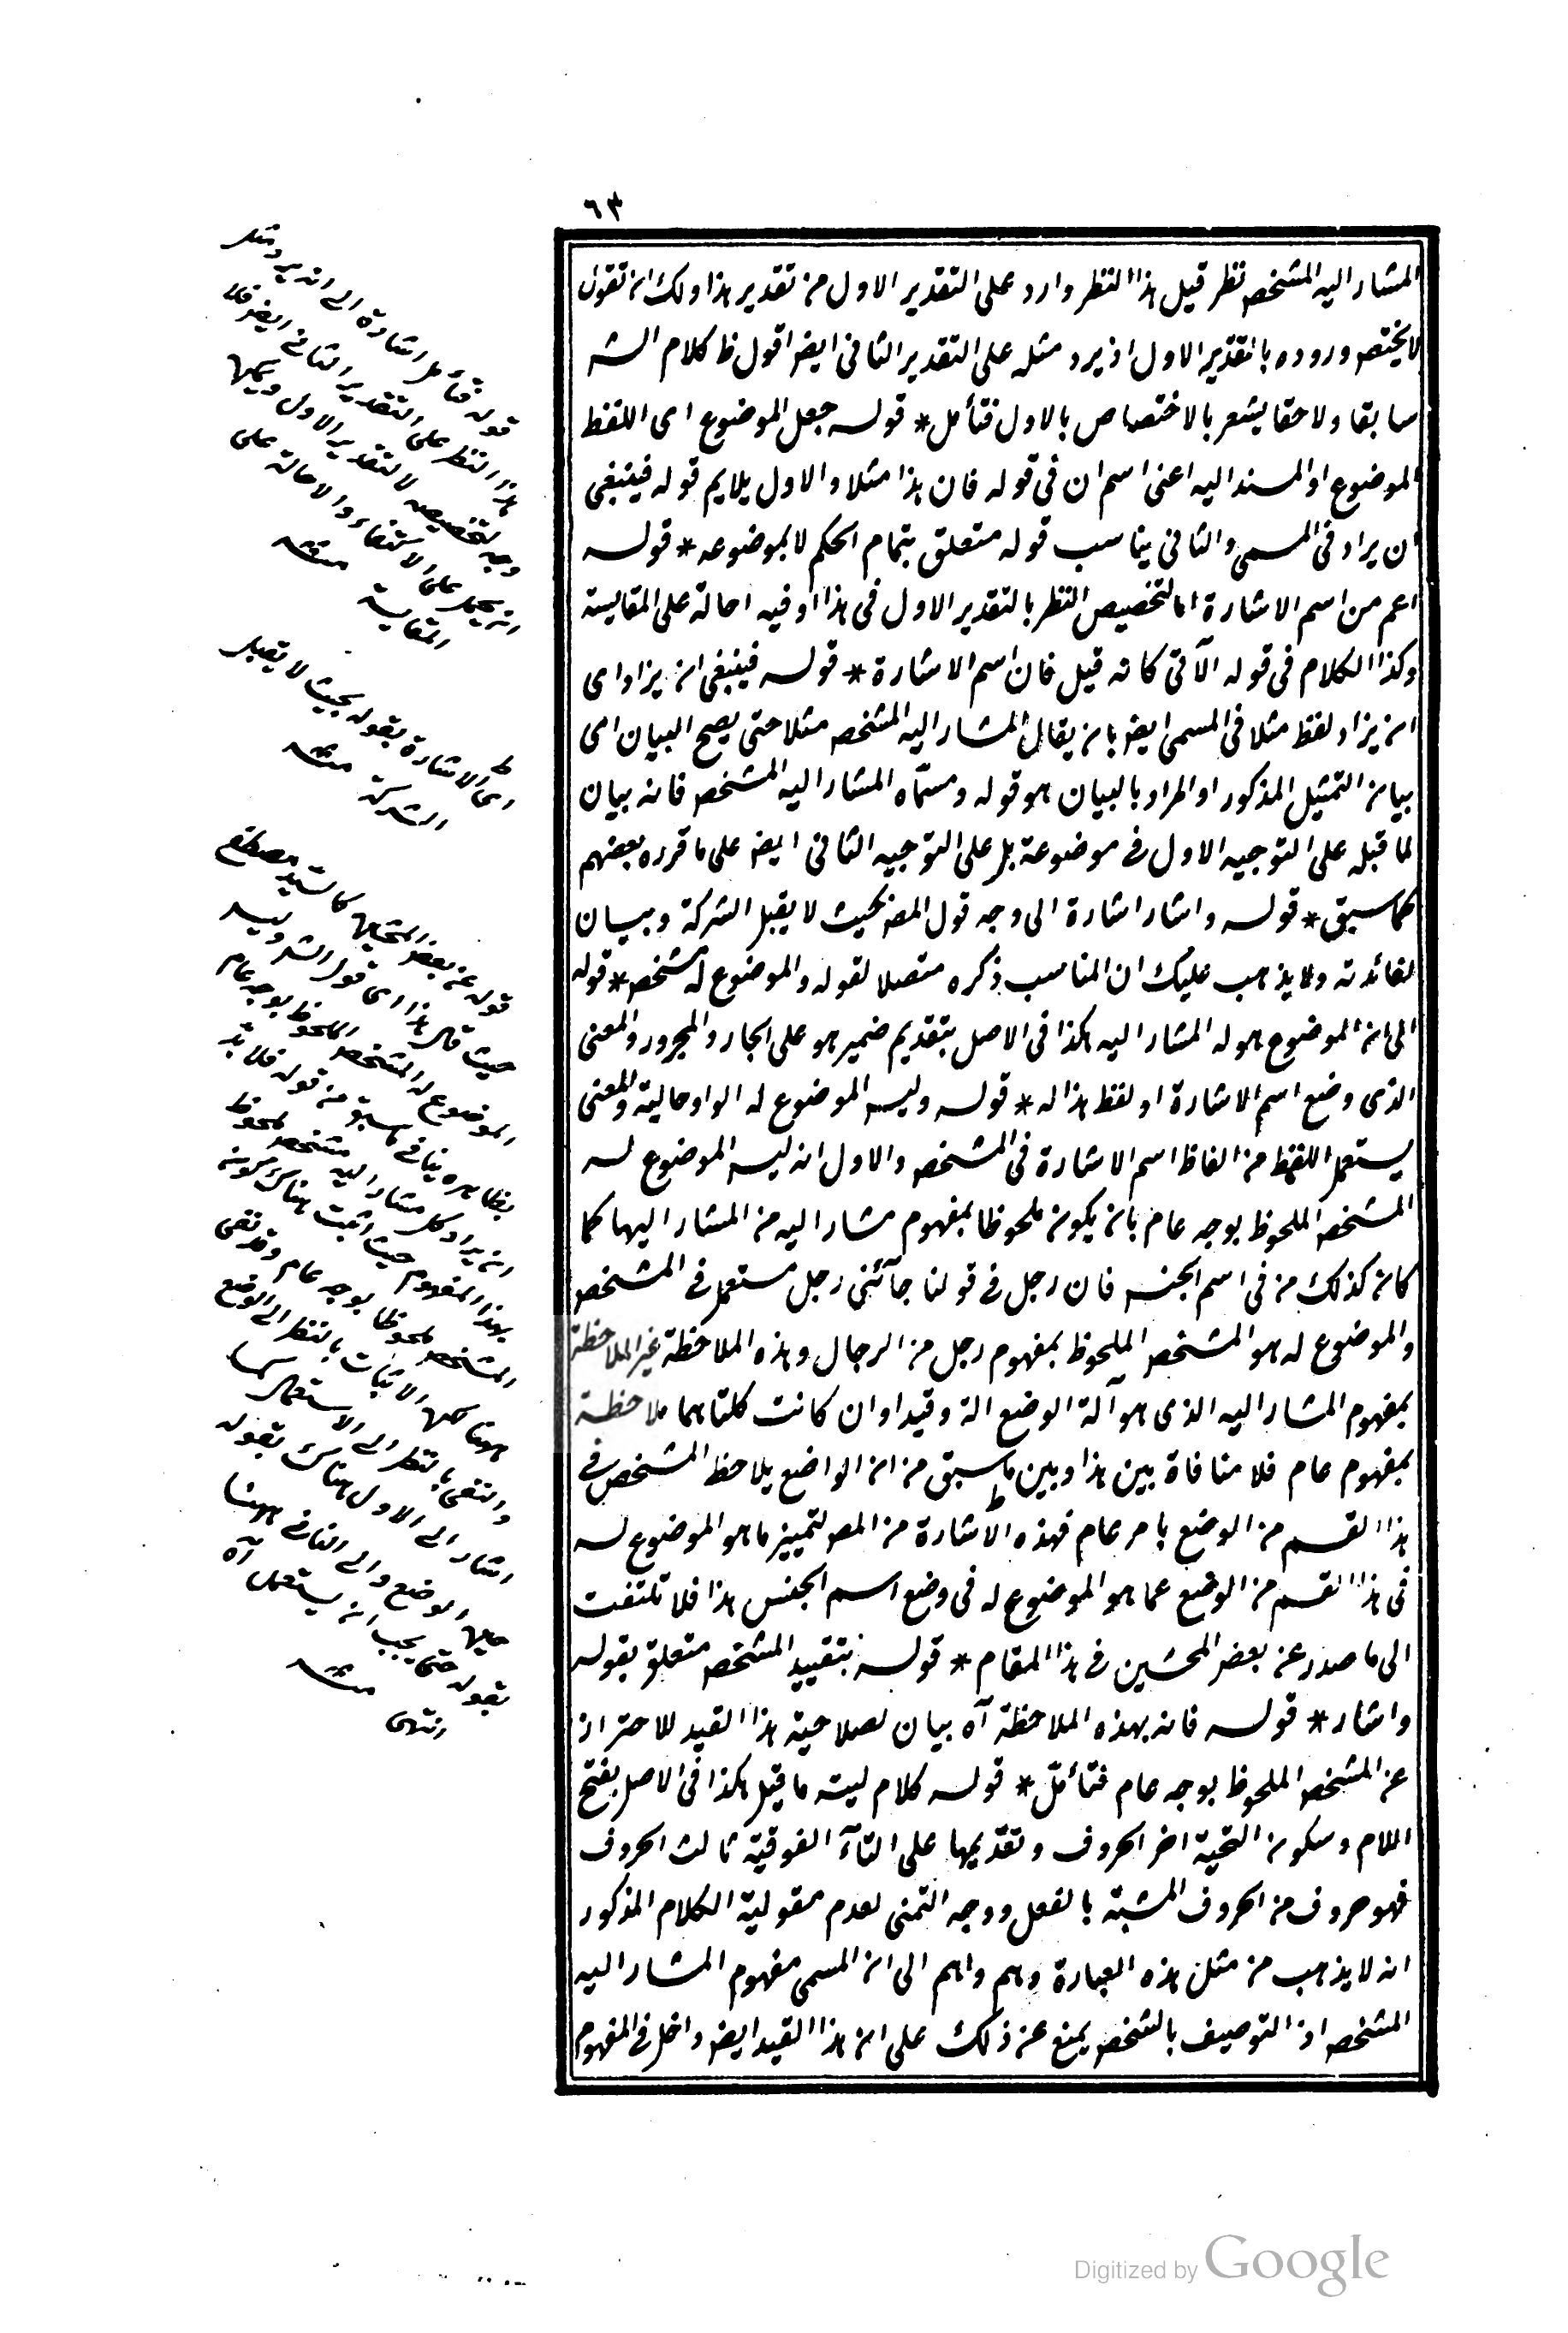 ٦٣
المشار اليه المشخص نظر قيل هذا النظر وارد على التقدير الاول من تقدير هذا ولك ان تقول
لا يختص وروده بالتقدير الاول اذ يرد مثله على التقدير الثانى ايضا اقول ظ كلام الشه
سابقا ولاحقا يشعر بالاختصاص بالاول فتأمل * قوله جعل الموضوع اى اللفظ
الموضوع او المسند اليه اعنى اسم ان فى قوله فان هذا مثلا والاول يلايم قوله فينبغى
ان يراد فى المسمى والثانى يناسب قوله متعلق بتمام الحكم لا بموضوعه * قوله
اعم من اسم الاشارة اما لتخصيص النظر بالتقدير الاول فى هذا او فيه احالة على المقايسة
وكذا الكلام فى قوله الآتى كانه قيل فان اسم الاشارة * قوله فينبغى ان يزاد اى
ان يزاد لفظ مثلا فى المسمى ايضا بان يقال المشار اليه المشخص مثلا حتى يصح البيان اى
بيان التمثيل المذكور او المراد بالبيان هو قوله ومسمّاه المشار اليه المشخص فانه بيان
لما قبله على التوجيه الاول فى موضوعة بل على التوجيه الثانى ايضا على ما قرره بعضهم
كما سبق * قوله واشار اشارة الى وجه قول المص بحيث لا يقبل الشركة وبيان
لفائدته ولا يذهب عليك ان المناسب ذكره متصلا لقوله والموضوع له مشخص * قوله
الى ان الموضوع هو له المشار اليه هكذا فى الاصل بتقديم ضمير هو على الجار والمجرور والمعنى
الذى وضع اسم الاشارة او لفظ هذا له * قوله وليس الموضوع له الواو حالية والمعنى
يستعمل اللفظ من الفاظ اسم الاشارة فى المشخص والاول انه ليس الموضوع له
المشخص الملحوظ بوجه عام بان يكون ملحوظا بمفهوم مشار اليه من المشار اليها كما
كان كذلك من فى اسم الجنس فان رجل فى قولنا جآئنى رجل مستعمل فى المشخص
والموضوع له هو المشخص الملحوظ بمفهوم رجل من الرجال وهذه الملاحظة غير الملاحظة
بمفهوم المشار اليه الذى هو آلة الوضع الة وقيدا وان كانت كلتاهما ملاحظة
بمفهوم عام فلا منافاة بين هذا وبين ما سبق من ان الواضع يلاحظ المشخص فى
هذا القسم من الوضع بامر عام فهذه الاشارة من المص لتمييز ما هو الموضوع له
فى هذا القسم من الوضع عما هو الموضوع له فى وضع اسم الجنس هذا فلا تلتفت
الى ما صدر عن بعض المحشين فى هذا المقام * قوله بتقييد المشخص متعلق بقوله
واشار * قوله فانه بهذه الملاحظة آه بيان لصلاحية هذا القيد للاحتراز
عن المشخص الملحوظ بوجه عام فتأمّل * قوله كلام ليته ما قيل هكذا فى الاصل بفتح
اللام وسكون التحية اخر الحروف وتقديمها على التآء الفوقية ثالث الحروف
فهو حروف من الحروف المشبة بالفعل ووجه التمنى لعدم مقولية الكلام المذكور
انه لا يذهب من مثل هذه العبارة وهم واهم الى ان المسمى مفهوم المشار اليه
المشخص اذ التوصيف بالشخص يمنع عن ذلك على ان هذا القيد ايضا داخل فى المفهوم
قوله فتأمل اشارة الى انه يرد مثل
هذا النظر على التقدير الثانى ايضا فلا
وجه لتخصيصه لا لتقدير الاول ويمكن
ان يحمل على الاكتفاء والاحالة على
المقايسة منه
اى الاشارة بقوله بحيث لا يقبل
الشركة منه
قوله عن بعض المحشين كالسيد مصطفى
حيث قال هذا اى قول الشه وليس
الموضوع له المشخص الملحوظ بوجه عام
بظاهره ينافى ما سبق من قوله فلا بد
ان يراد كل مشار اليه مشخص ملحوظ
بهذا المفهوم حيث اثبت هناك كونه
المشخص ملحوظا بوجه عام وقد نفى
ههنا لكن الاثبات بالنظر الى الوضع
والنفى بالنظر الى الاستعمال كما
اشار الى الاول هناك بقوله
حين الوضع والى الثانى ههنا
بقوله حتى يجب ان يستعمل آه
انتهى منه
Digitized by Google